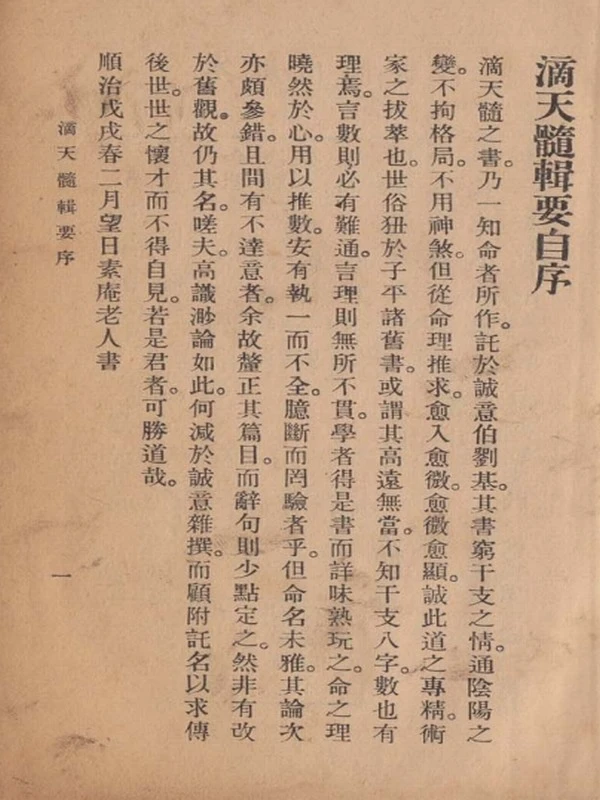 滴天髓輯要自序
滴天髓之書。乃一知命者所作。託於誠意伯劉基。其書窮干支之情。通陰陽之
變。不拘格局。不用神煞。但從命理推求。愈入愈微。愈微愈顯。誠此道之專精。術
家之拔萃也。世俗狃於子平諸舊書。或謂其高遠無當。不知干支八字。數也有
理焉。言數則必有難通。言理則無所不貫。學者得是書而詳味熟玩之。命之理
曉然於心。用以推數。安有執一而不全。臆斷而罔驗者乎。但命名未雅。其論次
亦頗參錯。且間有不達意者。余故釐正其篇目。而辭句則少點定之。然非有改
於舊觀。故仍其名。嗟夫。高識渺論如此。何減於誠意雜撰。而顧附託名以求傳
後世。世之懷才而不得自見。若是君者。可勝道哉。
順治戊戌春二月望日素庵老人書
滴天髓輯要序
一